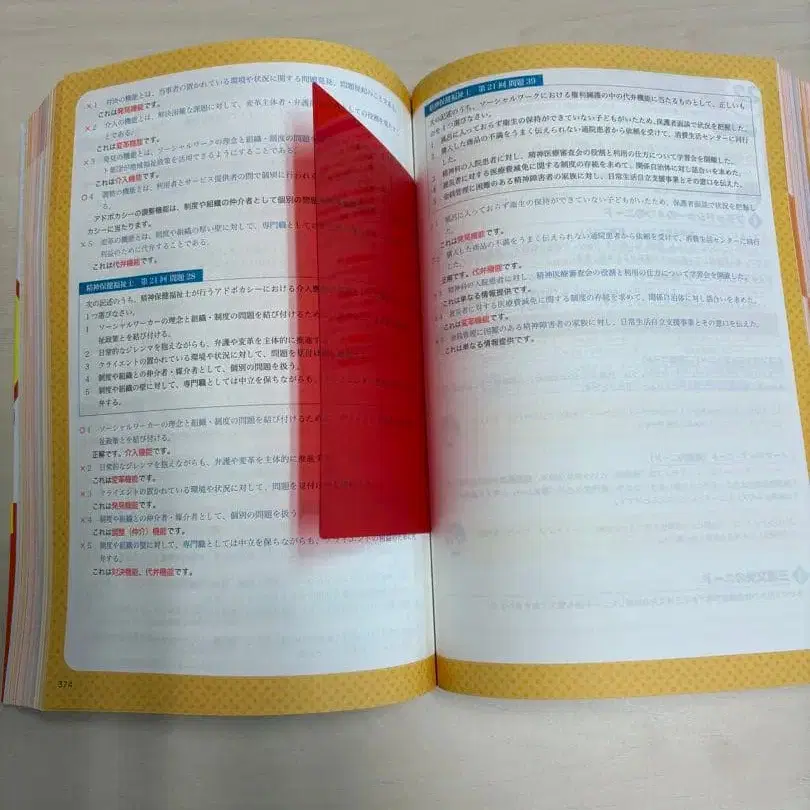 ×1 対決の機能とは、当事者の置かれている環境や状況に関する問題発見、問題提起のことである。
これは発見機能です。
×2 介入の機能とは、解決困難な課題に対して、変革主体者・弁護
とである。
これは変革機能です。
×3 発見の機能とは、ソーシャルワークの理念と組織・制度の問題
ト集団が地域福祉政策を活用できるようにすることである。
これは介入機能です。
○4 調整の機能とは、利用者とサービス提供者の間で個別に行われる
る。
アドボカシーの調整機能は、制度や組織の仲介者として個別の問題
カシーに当たります。
×5 変革の機能とは、制度や組織の厚い壁に対して、専門職としての
利益のために代弁することである。
これは代弁機能です。
精神保健福祉士 第21回 問題28
次の記述のうち、精神保健福祉士が行うアドボカシーにおける介入
1つ選びなさい。
1 ソーシャルワーカーの理念と組織・制度の問題を結び付けるため
祉政策とを結び付ける。
2 日常的なジレンマを抱えながらも、弁護や変革を主体的に推進す
3 クライエントの置かれている環境や状況に対して、問題を見付け
4 制度や組織との仲介者・媒介者として、個別の問題を扱う。
5 制度や組織の壁に対して、専門職としては中立を保ちながらも、
弁する。
○1 ソーシャルワーカーの理念と組織・制度の問題を結び付けるため
祉政策とを結び付ける。
正解です。介入機能です。
×2 日常的なジレンマを抱えながらも、弁護や変革を主体的に推進す
これは変革機能です。
×3 クライエントの置かれている環境や状況に対して、問題を見付け
これは発見機能です。
×4 制度や組織との仲介者・媒介者として、個別の問題を扱う
これは調整(仲介)機能です。
×5 制度や組織の壁に対して、専門職としては中立を保ちながらも、クライエントの利益のために代
弁する。
これは対決機能、代弁機能です。
374
精神保健福祉士 第21回 問題39
次の記述のうち、ソーシャルワークにおける権利擁護の中の代弁機能に当たるものとして、正しいも
のを1つ選びなさい。
1 風呂に入っておらず衛生の保持ができていない子どもがいたため、保護者面談で状況を把握した。
2 購入した商品の不満をうまく伝えられない通院患者から依頼を受けて、消費生活センターに同行
した。
3 精神科の入院患者に対し、精神医療審査会の役割と利用の仕方について学習会を開催した。
4 被災者に対する医療費減免に関する制度の存続を求めて、関係自治体に対し話合いを求めた。
5 金銭管理に困難のある精神障害者の家族に対し、日常生活自立支援事業とその窓口を伝えた。
風呂に入っておらず衛生の保持ができていない子どもがいたため、保護者面談で状況を把握し
た。
これは発見機能です。
購入した商品の不満をうまく伝えられない通院患者から依頼を受けて、消費生活センターに同行
した。
正解です。代弁機能です。
精神科の入院患者に対し、精神医療審査会の役割と利用の仕方について学習会を開催した。
これは単なる情報提供です。
被災者に対する医療費減免に関する制度の存続を求めて、関係自治体に対し話合いを求めた。
これは変革機能です。
金銭管理に困難のある精神障害者の家族に対し、日常生活自立支援事業とその窓口を伝えた。
これは単なる情報提供です。